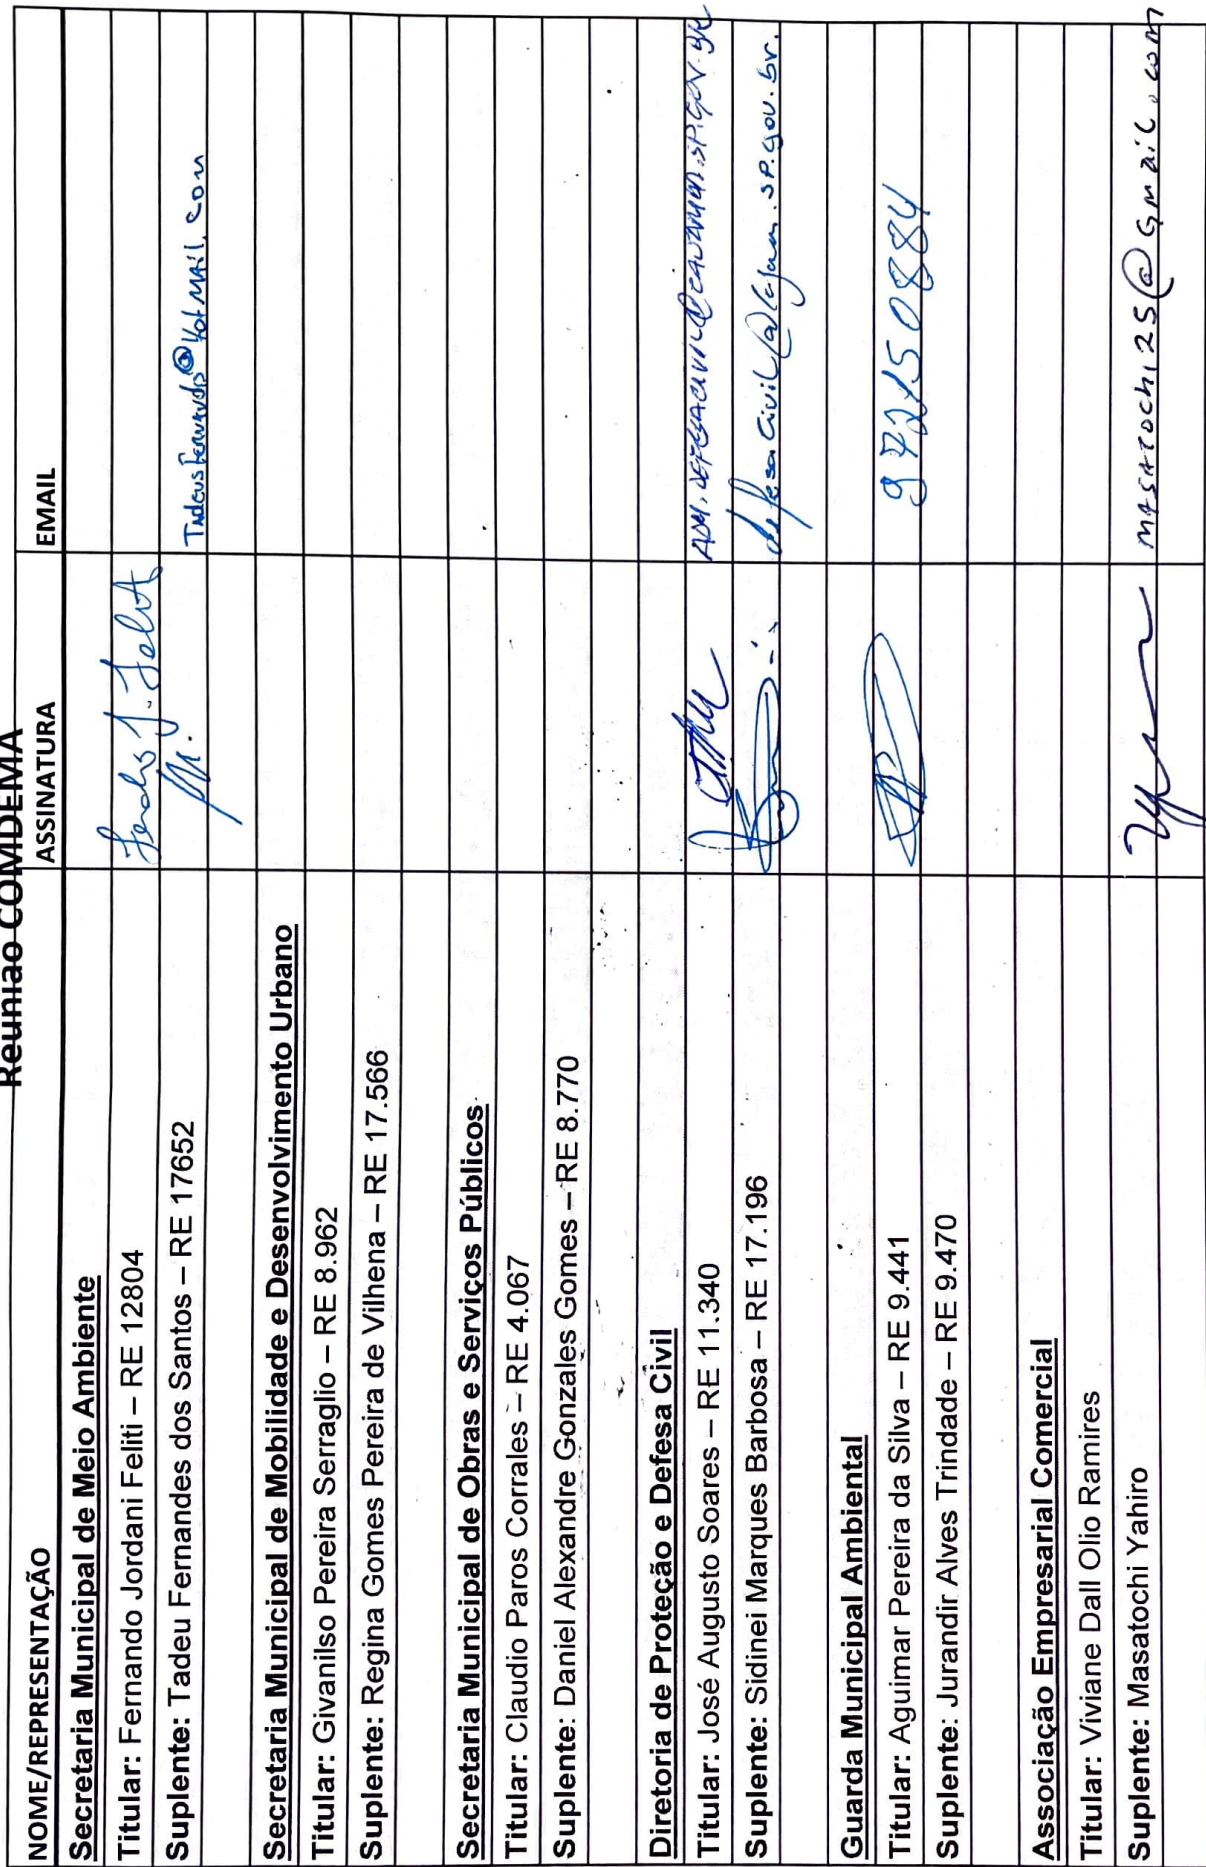 Reunião COMDEMA
NOME/REPRESENTAÇÃO ASSINATURA EMAIL
Secretaria Municipal de Meio Ambiente
Titular: Fernando Jordani Feliti – RE 12804
Suplente: Tadeu Fernandes dos Santos – RE 17652 @hotmail.com
Secretaria Municipal de Mobilidade e Desenvolvimento Urbano
Titular: Givanilso Pereira Serraglio – RE 8.962
Suplente: Regina Gomes Pereira de Vilhena – RE 17.566
Secretaria Municipal de Obras e Serviços Públicos
Titular: Claudio Paros Corrales – RE 4.067
Suplente: Daniel Alexandre Gonzales Gomes – RE 8.770
Diretoria de Proteção e Defesa Civil
Titular: José Augusto Soares – RE 11.340 ADM.DEFESACIVIL@CAJAMAR.SP.GOV.BR
Suplente: Sidinei Marques Barbosa – RE 17.196 defesacivil@cajamar.sp.gov.br.
Guarda Municipal Ambiental
Titular: Aguimar Pereira da Silva – RE 9.441 972150884
Suplente: Jurandir Alves Trindade – RE 9.470
Associação Empresarial Comercial
Titular: Viviane Dall Olio Ramires
Suplente: Masatochi Yahiro masatochi25@gmail.com